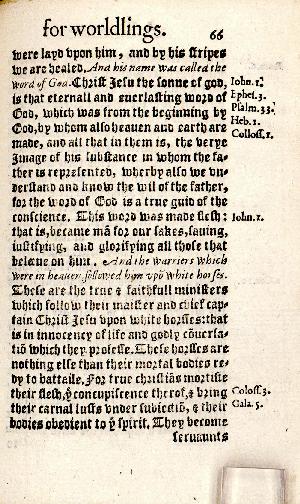 for worldlings. 66
were layd vpon him, and by his stripes
we are healed. And his name was called the
word of God. Christ Jesu the sonne of god,
is that eternall and euerlasting word of
God, which was from the beginning by
God, by whom also heauen and earth are
made, and all that in them is, the verye
Image of his substance in whom the fa-
ther is represented, wherby also we vn-
derstand and know the wil of the father,
for the word of God is a true guid of the
conscience. This word was made flesh:
that is, became mā for our sakes, sauing,
iustifying, and glorifying all those that
beleue on him. And the warriers which
were in heauen, followed hym vpō white horses.
These are the true & faithfull ministers
which follow their maister and chief cap-
tain Christ Jesu vpon white horsses: that
is in innocency of life and godly cōuersa-
tiō which they professe. These horsses are
nothing else than their mortal bodies re-
dy to battaile. For true christiās mortifie
their flesh, ẏ concupiscence therof, & bring
their carnal lusts vnder subiectiō, & their
bodies obedient to ẏ spirit. They become
seruaunts
Iohn. 1.
Ephes. 3.
Psalm. 33.
Heb. 1.
Colloss. 1.
Iohn. 1.
Coloss. 3.
Gala. 5.